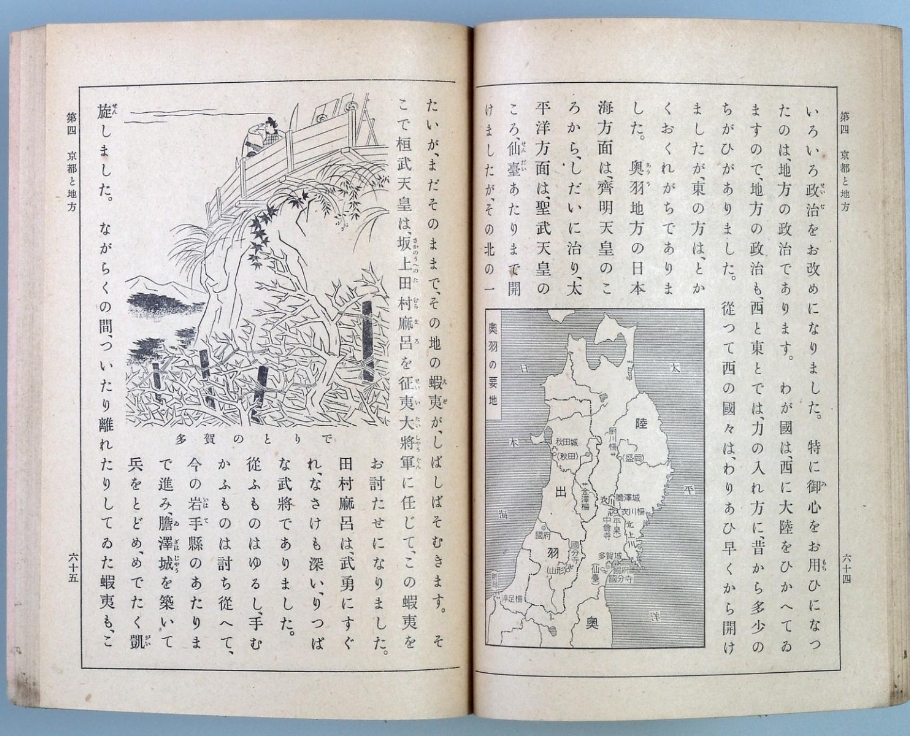 第四 京都と地方
六十四
いろいろ政治をお改めになりました。特に御心をお用ひになつ
たのは、地方の政治であります。わが國は、西に大陸をひかへてゐ
ますので、地方の政治も、西と東とでは、力の入れ方に、昔から多少の
ちがひがありました。從つて西の國々はわりあひ早くから開け
ましたが、東の方は、とか
くおくれがちでありま
した。奥羽地方の日本
海方面は、齊明天皇のこ
ろから、しだいに治り、太
平洋方面は、聖武天皇の
ころ、仙臺あたりまで開
けましたが、その北の一
奥羽の要地
日本海
太平洋
陸
奥
出
羽
秋田城
(秋田)
厨川柵
(盛岡)
金澤柵
膽澤城
衣川柵
衣川
(平泉)
中尊寺
北上川
國府
國分寺
(山形)
多賀城
國府
國分寺
仙臺
渟足柵
たいが、まだそのままで、その地の蝦夷が、しばしばそむきます。そ
こで桓武天皇は、坂上田村麻呂を征夷大將軍に任じて、この蝦夷を
お討たせになりました。
田村麻呂は、武勇にすぐ
れ、なさけも深い、りつぱ
な武將でありました。
從ふものはゆるし、手む
かふものは討ち從へて、
今の岩手縣のあたりま
で進み、膽澤城を築いて
兵をとどめ、めでたく凱
旋しました。ながらくの間ついたり離れたりしてゐた蝦夷も、こ
多賀のとりで
第四 京都と地方
六十五